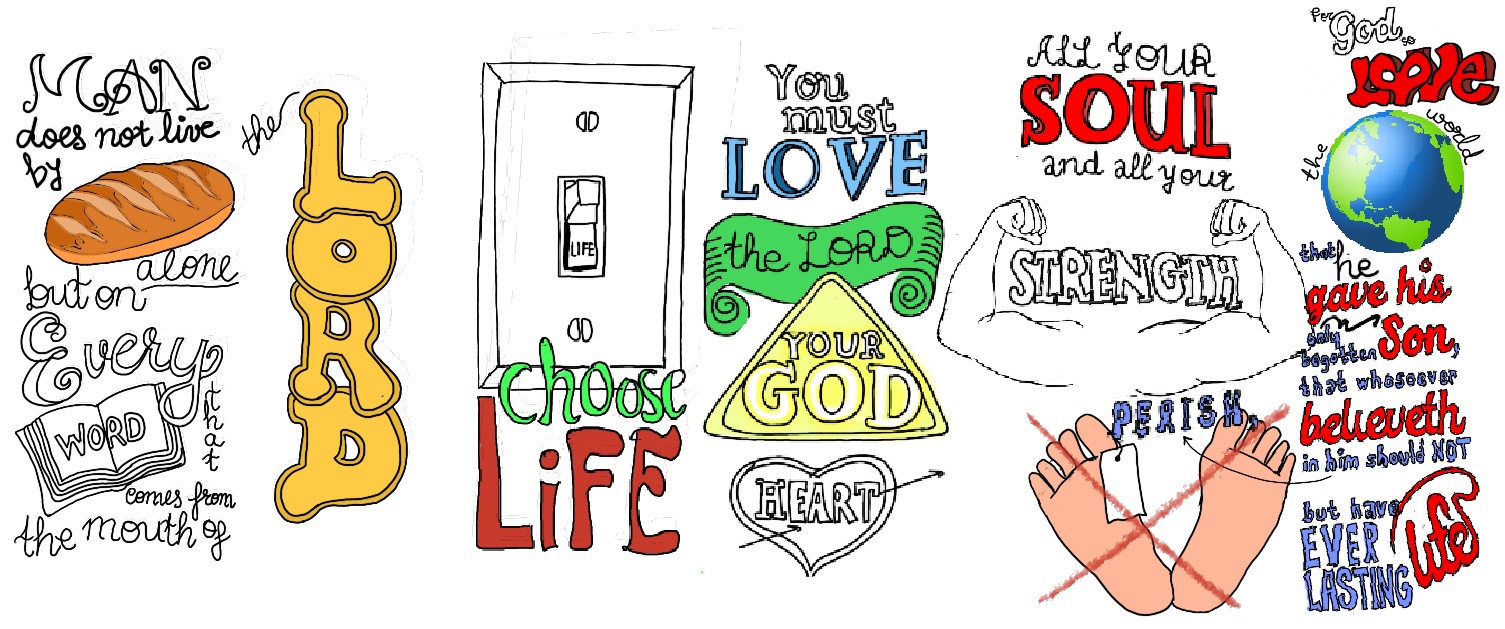 MAN
does not live
by
alone
but on
Every
WORD
that
comes from
the mouth of
the
LORD
LIFE
choose
LiFE
You
must
LOVE
the LORD
YOUR
GOD
HEART
ALL YOUR
SOUL
and all your
STRENGTH
For
God
so
LOVE
the world
that he
gave his
only
begotten Son,
that whosoever
believeth
in him should NOT
PERISH,
but have
EVER
LASTING
life